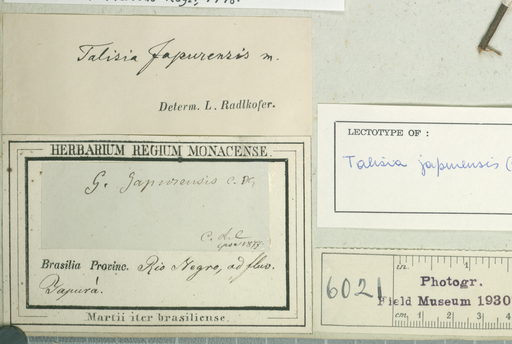 Talisia japurensis m.
Determ. L. Radlkofer.
HERBARIUM REGIUM MONACENSE.
G. Japurensis C. DC,
C. d. C
Brasilia Provinc. Rio Negro, ad fluv.
Japurá.
Martii iter brasiliense.
LECTOTYPE OF :
Talisia japurensis (
6021
in. 1
Photogr.
Field Museum 1930
cm 1 2 3 4